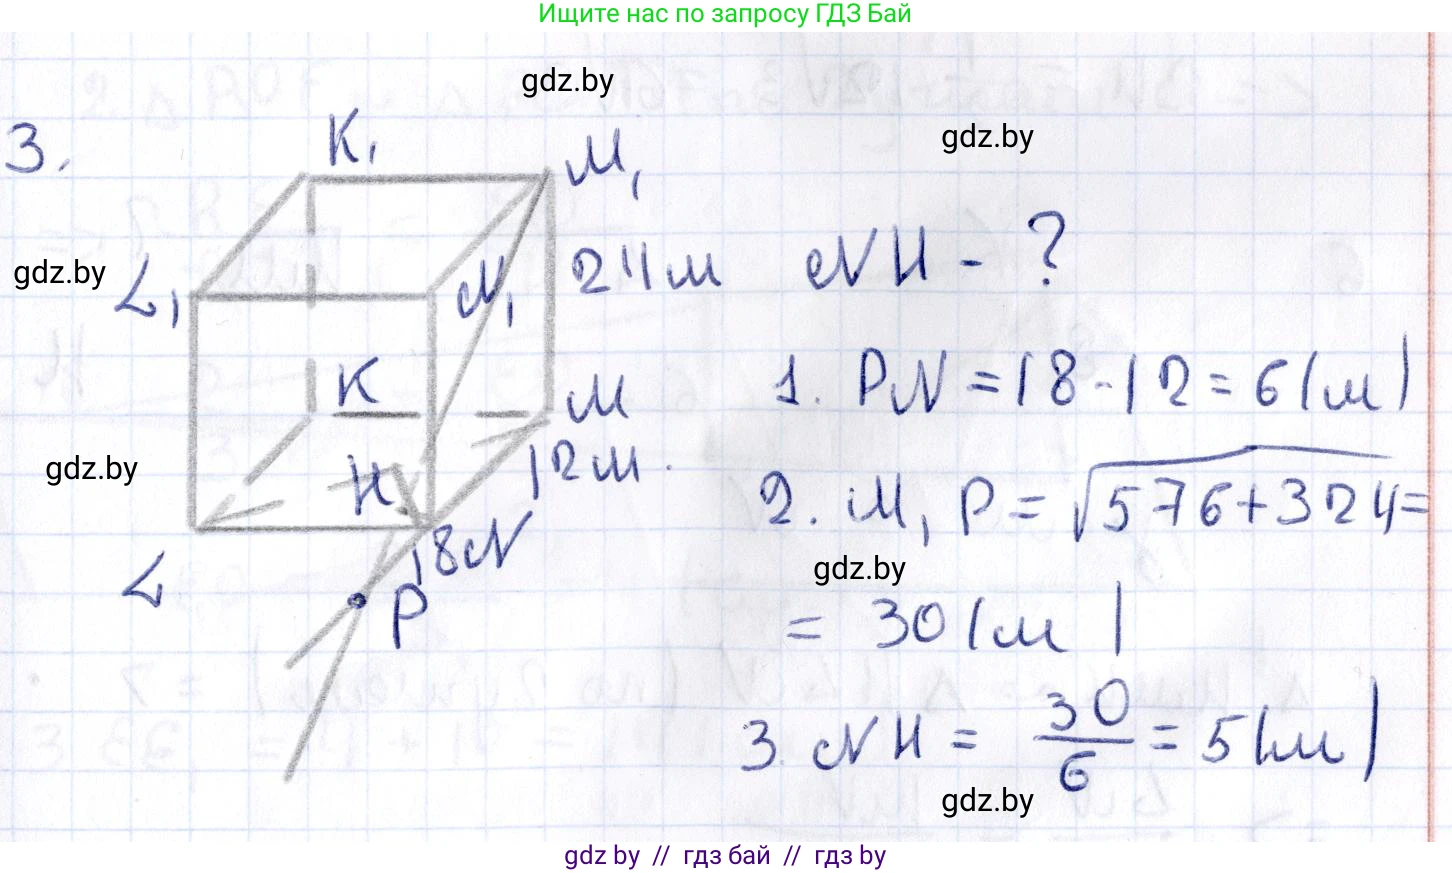 Ищите нас по запросу ГДЗ Бай
gdz.by
gdz.by
3.
K₁
M₁
gdz.by
L₁
N₁
24м
NH - ?
K
M
1. PN = 18 - 12 = 6 (м)
gdz.by
H
12м.
2. M₁P = √576+324 =
L
18
N
gdz.by
P
= 30 (м)
3. NH = 30/6 = 5 (м)
gdz.by
gdz by // гдз бай // гдз by